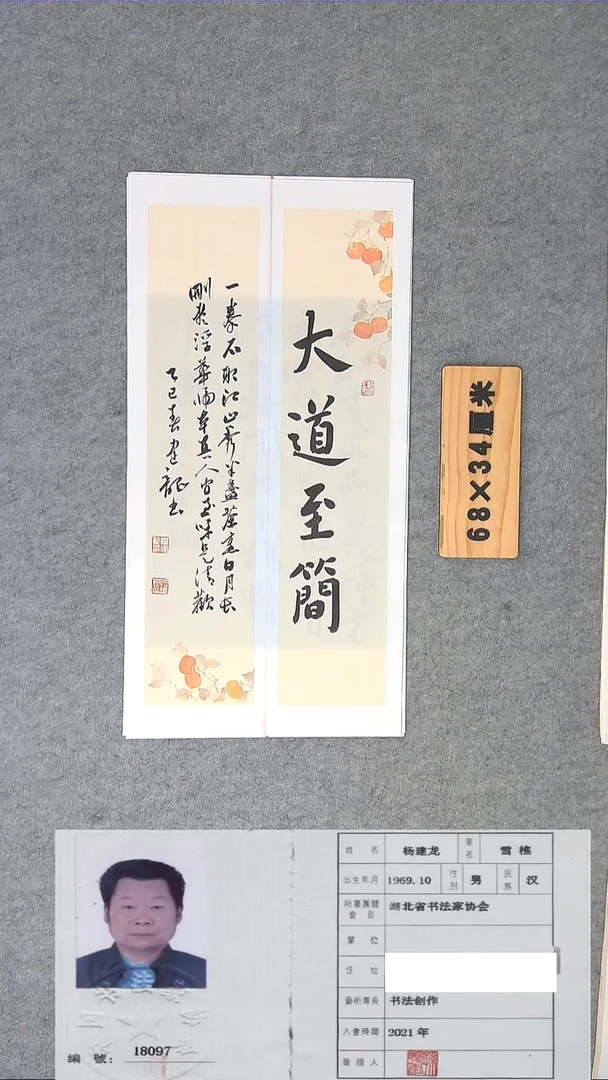 大道至簡
一拳石取江山秀半盏茶意日月长
删繁浮華归本真人间至味是清歡
乙巳春建龍书
68×34厘米
姓 名 杨建龙 筆名 雪樵
出生年月 1969.10 性别 男 民族 汉
所屬團體會員 湖北省书法家协会
單 位
住 址
藝術專長 书法创作
入會時間 2021年
簽證人
編 號: 18097